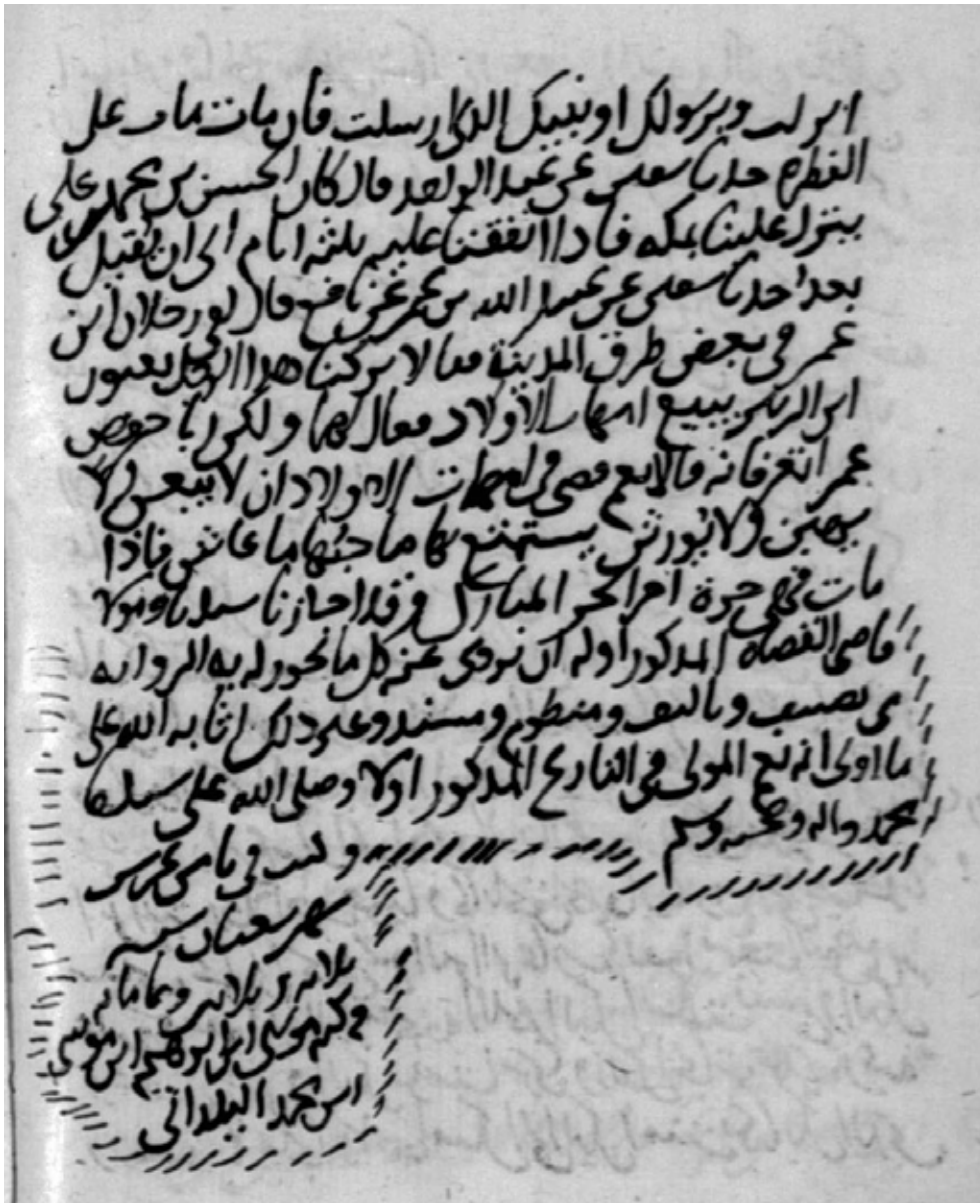 انزلت وبرسولك او نبيك الذي ارسلت فان مات مات على
الفطرة حدثنا سفين عن عبد الواحد قال كان الحسن بن محمد بن علي
ينزل علينا بمكة فاذا انفقنا عليه ثلثه ايام ابى ان يقبل
بعد احدثنا سفين عن عبيد الله بن عمر عن نافع قال لقي رجلان ابن
عمر في بعض طرق المدينة فقالا تركنا هذا الرجل يعنون
ابن الزبير يبيع امهات الاولاد فقال لهما ولكن ابا حفص
عمر اتعرفانه قالا نعم قضى في امهات الاولاد ان لا يبعن ولا
يوهبن ولا يورثن يستمتع بها صاحبها ما عاش فاذا
مات فهي حرة اخر الجزء المبارك وقد اجازنا سيدنا ومولا
قاضي القضاة المذكور اوله ان نروي عنه كل ما يجوز له به الرواية
من تصنيف وتاليف ومنظوم ومسند وغير ذلك اثابه الله على
ما اولى انه نعم المولى في التاريخ المذكور اولا وصلى الله على سيدنا
محمد واله وصحبه وسلم
وكتب في ثامن عشر
شهر شعبان سنة
ثلاثة وثلاثين وثمانمائة
موسى ابن ابراهيم ابن موسى
ابن محمد البلداني